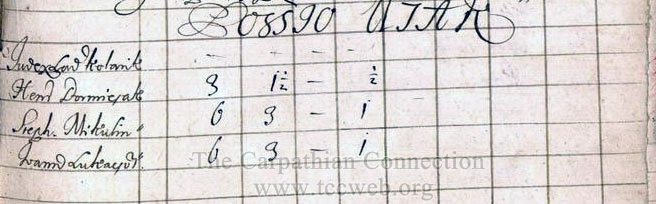 Possio UJAK
Judex Lad Kolarik – – – –
Hend Dorniczak 3 1½ – ½
Steph. Mikulin 6 3 – 1
Joannd Lukacsik. 6 3 – 1
The Carpathian Connection
www.tccweb.org